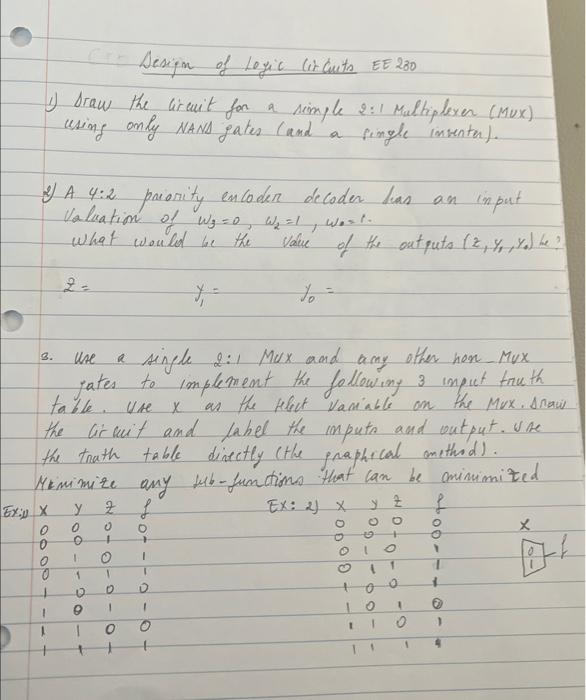 Design of Logic Circuits EE 280
1) Draw the circuit for a simple 2:1 Multiplexer (MUX)
using only NAND gates (and a single inverter).
2) A 4:2 priority encoder decoder has an input
Valuation of w₃=0, w₂=1, w₀=1.
what would be the value of the outputs (z, y₁, y₀) be?
z = y₁ = y₀ =
3. Use a single 2:1 Mux and any other non-Mux
gates to implement the following 3 input truth
table. Use x as the select variable on the Mux. Draw
the circuit and label the inputs and output. Use
the truth table directly (the graphical method).
Minimize any sub-functions that can be minimized
Ex:1) x y z f
0 0 0 0
0 0 1 1
0 1 0 1
0 1 1 1
1 0 0 0
1 0 1 1
1 1 0 0
1 1 1 1
Ex: 2) x y z f
0 0 0 0
0 0 1 0
0 1 0 1
0 1 1 1
1 0 0 1
1 0 1 0
1 1 0 1
1 1 1
x
0
1
f